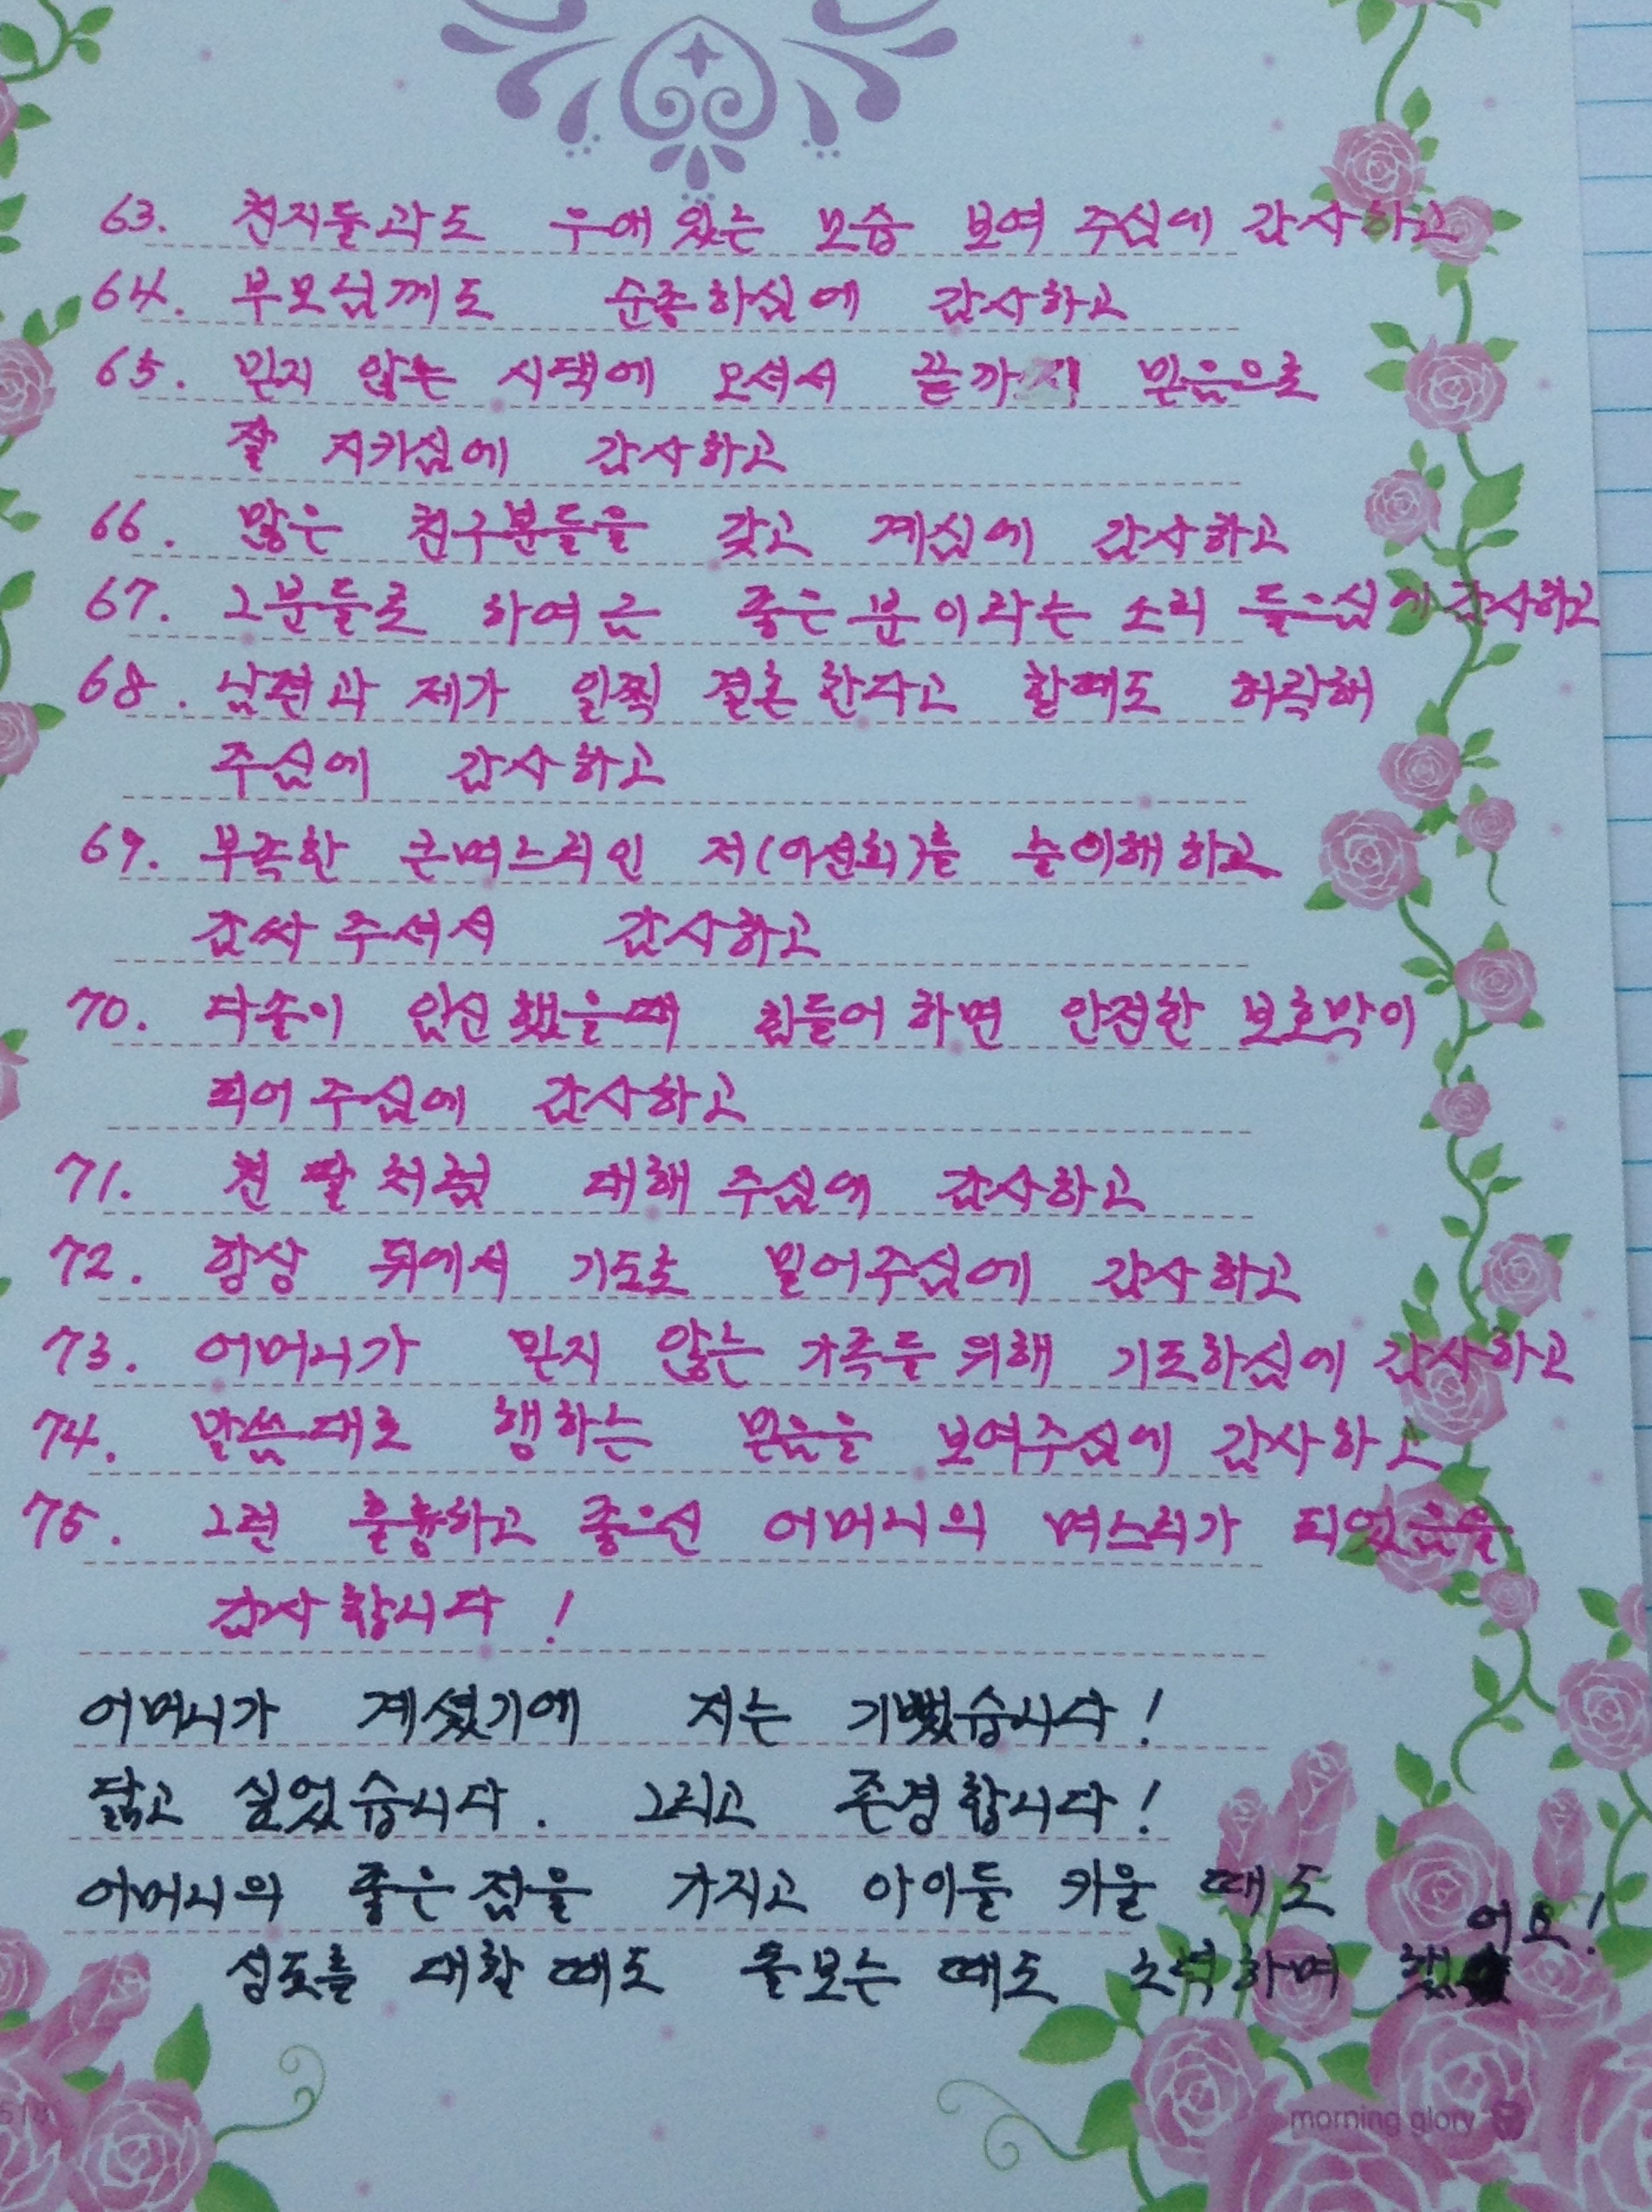 63. 친지들과도 우애있는 모습 보여 주심에 감사하고
64. 부모님께도 순종하심에 감사하고
65. 믿지 않는 시댁에 오셔서 끝까지 믿음으로
잘 지키심에 감사하고
66. 많은 친구분들을 갖고 계심에 감사하고
67. 그분들로 하여금 좋은 분이라는 소리 들으심에 감사하고
68. 남편과 제가 일찍 결혼한다고 할때도 허락해
주심에 감사하고
69. 부족한 큰며느리인 저(이선희)를 늘 이해하고
감싸 주셔서 감사하고
70. 다솔이 임신했을때 힘들어 하면 안전한 보호막이
되어 주심에 감사하고
71. 친 딸처럼 대해 주심에 감사하고
72. 항상 뒤에서 기도로 밀어주심에 감사하고
73. 어머니가 믿지 않는 가족들 위해 기도하심에 감사하고
74. 말씀대로 행하는 믿음을 보여주심에 감사하고
75. 그런 훌륭하고 좋으신 어머니의 며느리가 되었음을
감사합니다!
어머니가 계셨기에 저는 기뻤습니다!
닮고 싶었습니다. 그리고 존경합니다!
어머니의 좋은점을 가지고 아이들 키울 때도
성도를 대할 때도 돌보는 때도 노력하며 했어요!
morning glory